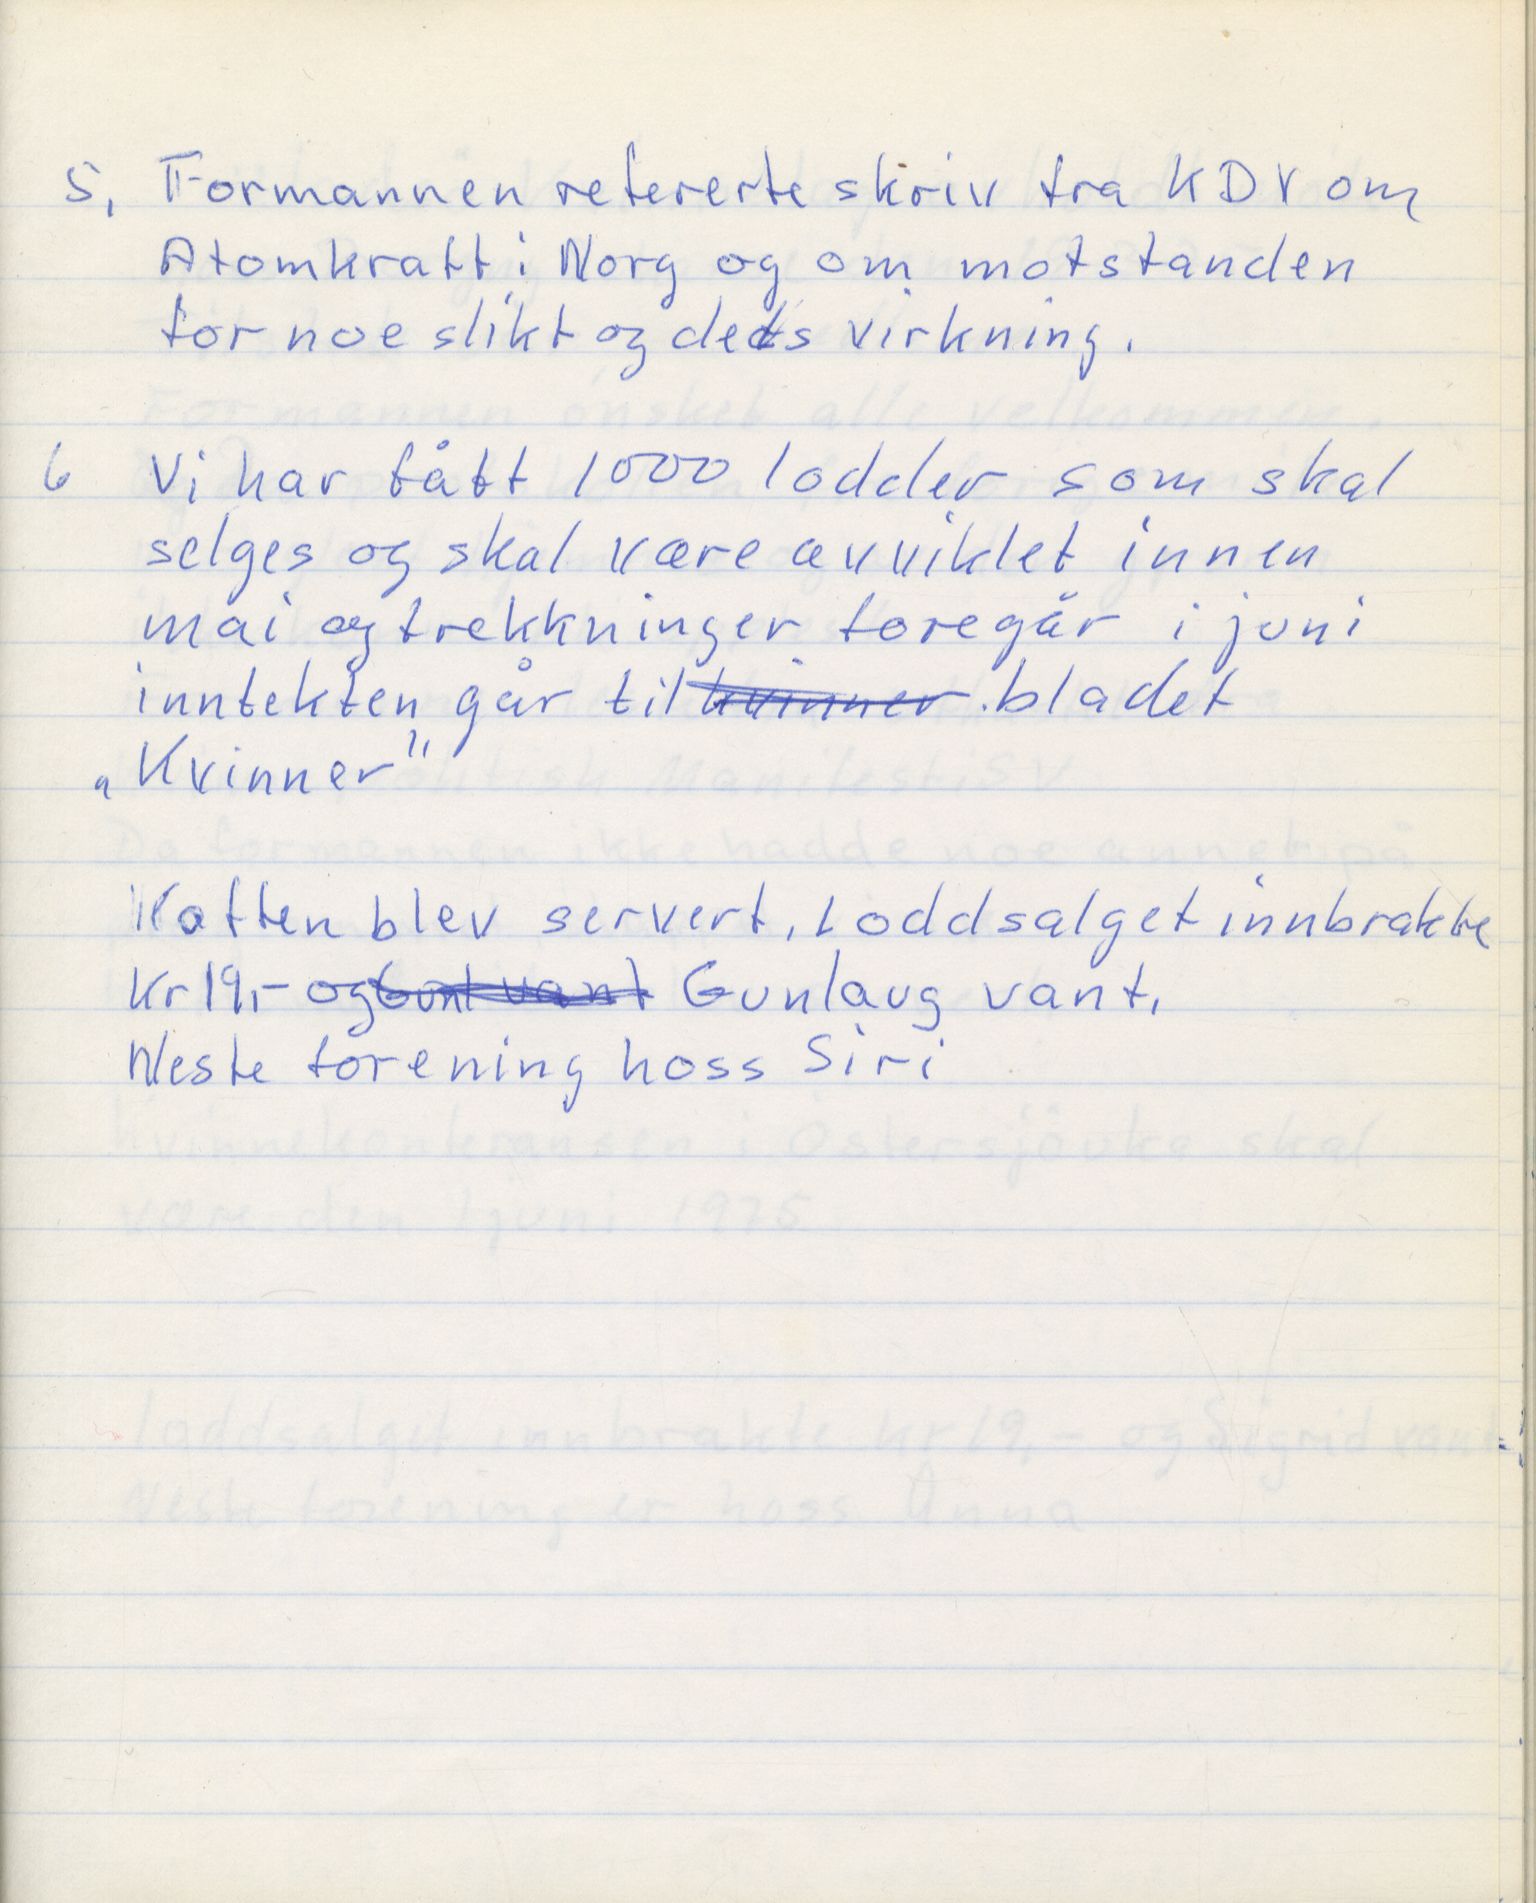 5, Formannen refererte skriv fra KDV om
Atomkraft i Norg og om motstanden
for noe slikt og dets virkning.
6 Vi har fått 1000 lodder som skal
selges og skal være avviklet innen
mai og trekkninger foregår i juni
inntekten går til kvinner bladet
„Kvinner"
Kaffen blev servert, Loddsalget innbrakte
Kr 19,- og Gunl vant Gunlaug vant,
Neste forening hoss Siri